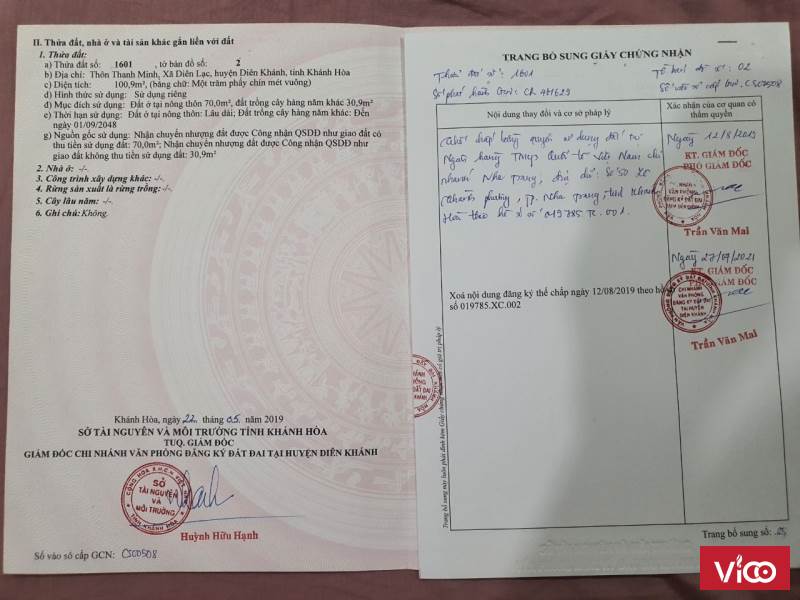 II. Thửa đất, nhà ở và tài sản khác gắn liền với đất
1. Thửa đất:
a) Thửa đất số: 1601, tờ bản đồ số: 2
b) Địa chỉ: Thôn Thanh Minh, Xã Diên Lạc, huyện Diên Khánh, tỉnh Khánh Hòa
c) Diện tích: 100,9m², (bằng chữ: Một trăm phẩy chín mét vuông)
d) Hình thức sử dụng: Sử dụng riêng
đ) Mục đích sử dụng: Đất ở tại nông thôn 70,0m², đất trồng cây hàng năm khác 30,9m²
e) Thời hạn sử dụng: Đất ở tại nông thôn: Lâu dài; Đất trồng cây hàng năm khác: Đến
ngày 01/09/2048
g) Nguồn gốc sử dụng: Nhận chuyển nhượng đất được Công nhận QSDĐ như giao đất có
thu tiền sử dụng đất: 70,0m²; Nhận chuyển nhượng đất được Công nhận QSDĐ như
giao đất không thu tiền sử dụng đất: 30,9m²
2. Nhà ở: -/-
3. Công trình xây dựng khác: -/-
4. Rừng sản xuất là rừng trồng: -/-
5. Cây lâu năm: -/-
6. Ghi chú: Không.
Khánh Hòa, ngày 22 tháng 05 năm 2019
SỞ TÀI NGUYÊN VÀ MÔI TRƯỜNG TỈNH KHÁNH HÒA
TUQ. GIÁM ĐỐC
GIÁM ĐỐC CHI NHÁNH VĂN PHÒNG ĐĂNG KÝ ĐẤT ĐAI TẠI HUYỆN DIÊN KHÁNH
SỞ
TÀI NGUYÊN
VÀ
MÔI TRƯỜNG
Huỳnh Hữu Hạnh
Số vào sổ cấp GCN: CS00508
TRANG BỔ SUNG GIẤY CHỨNG NHẬN
Thửa đất số: 1601
Tờ bản đồ số: 02
Số vào sổ cấp GCN: CS00508
Nội dung thay đổi và cơ sở pháp lý
Xác nhận của cơ quan có
thẩm quyền
Thế chấp bằng quyền sử dụng đất tại
Ngân hàng TMCP Quốc tế Việt Nam chi
nhánh Nha Trang, địa chỉ: Số 50 Lê
Thành Phương, TP. Nha Trang, tỉnh Khánh
Hòa theo hồ sơ số 019785.TC.001.
Ngày 12/8/2019
KT. GIÁM ĐỐC
PHÓ GIÁM ĐỐC
Trần Văn Mai
Ngày 27/09/2021
KT. GIÁM ĐỐC
GIÁM ĐỐC
CHI NHÁNH
VĂN PHÒNG
ĐĂNG KÝ ĐẤT ĐAI
TẠI HUYỆN
DIÊN KHÁNH
Trần Văn Mai
Xoá nội dung đăng ký thế chấp ngày 12/08/2019 theo hồ
số 019785.XC.002
Trang bổ sung số:
ViCO